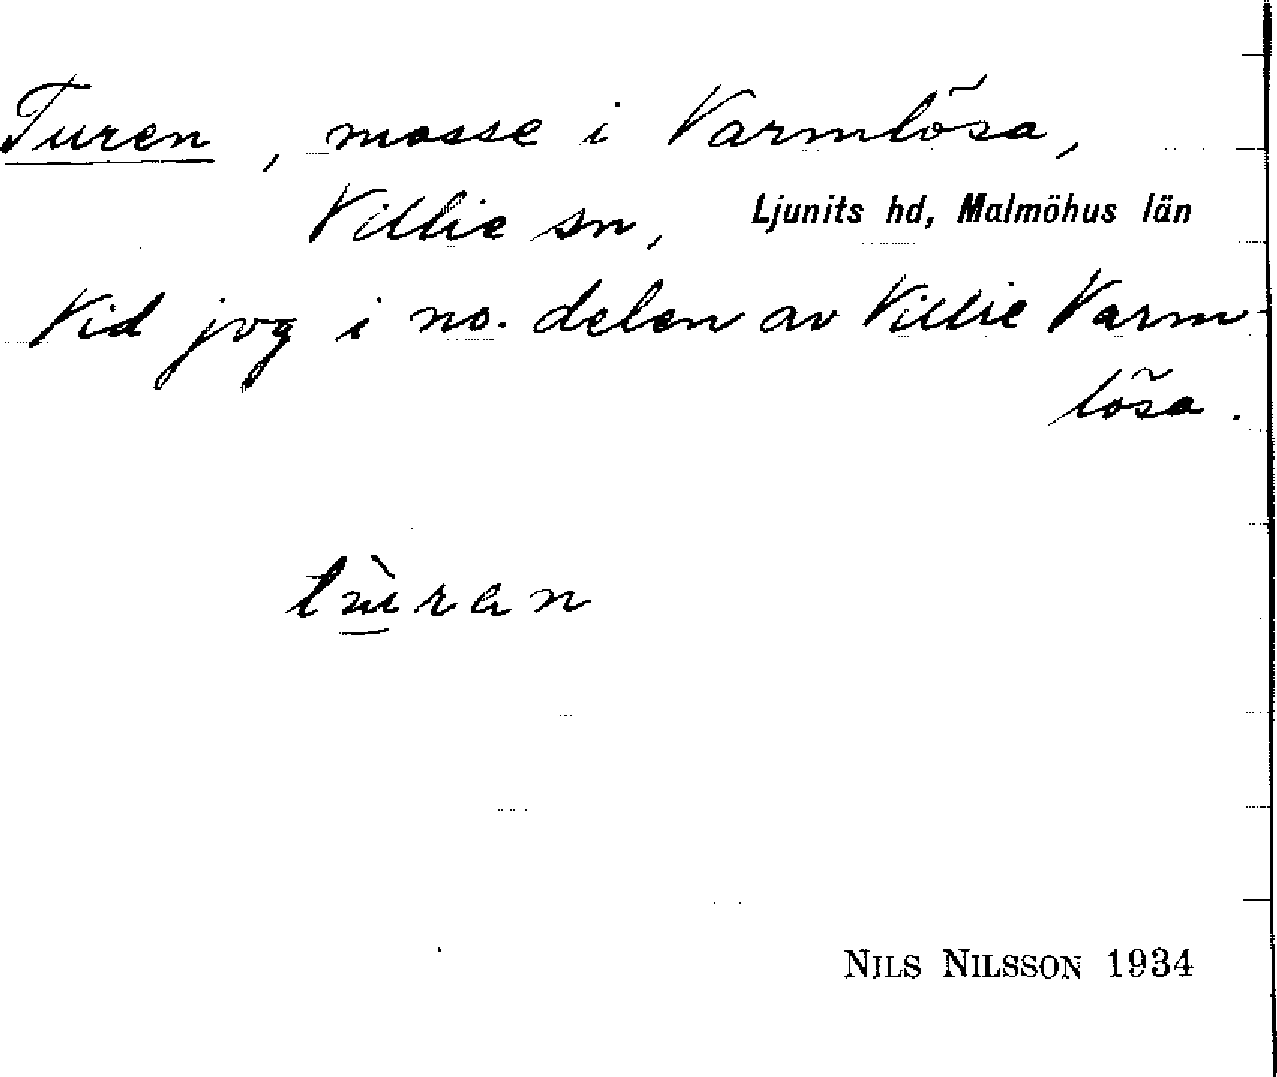 Turen, mosse i Varmlösa,
Villie sn, Ljunits hd, Malmöhus län
Vid jvg i no. delen av Villie Varm
lösa.
NILS NILSSON 1934